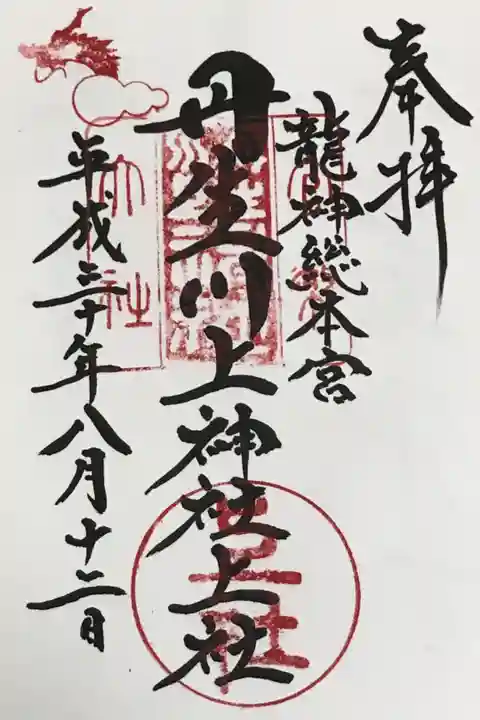 奉拝
龍神総本宮
丹生川上神社上社
平成三十年八月十二日